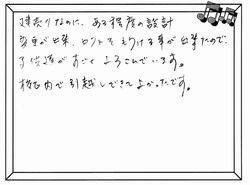 建売りなのに、ある程度の設計
変更が出来、ロフトをもうける事が出来たので、
子供達がすごくよろこんでいます。
校区内で引越しできて良かったです。